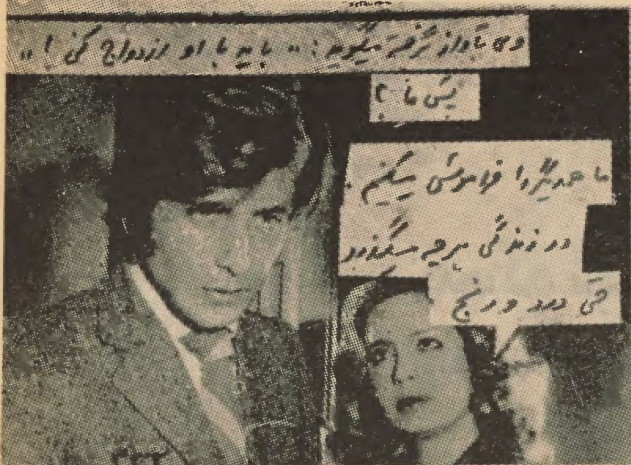 وی با آواز گرفته میگوید: «باید با او ازدواج کنی!»
پس ما؟
ما همدیگر را فراموش میکنیم.
در زندگی هرچه میگذرد
حتی درد و رنج